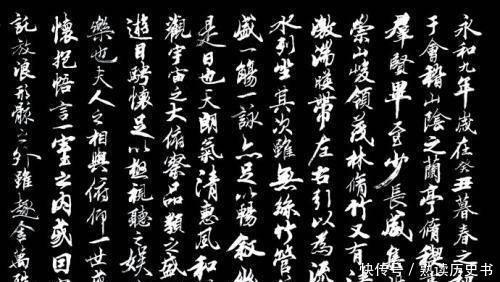 永和九年歲在癸丑暮春之初
于會稽山陰之蘭亭脩禊
羣賢畢至少長咸集
崇山峻領茂林脩竹又有清
激湍暎帶左右引以為流
水列坐其次雖無絲竹管
盛一觴一詠亦足以暢敘幽
是日也天朗氣清惠風和
觀宇宙之大俯察品類之盛
遊目騁懷足以極視聽之娛
樂也夫人之相與俯仰一世或
懷抱悟言一室之內或因
託放浪形骸之外雖趣舍萬殊
快传号/熟读历史书